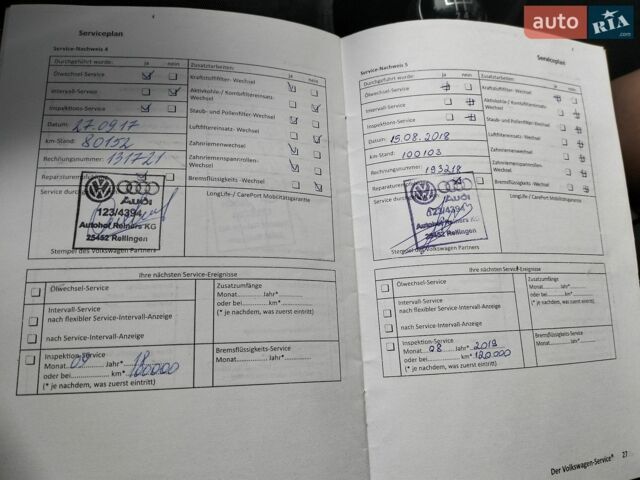 auto RIA.com
Serviceplan
Service-Nachweis 4
Durchgeführt wurde: ja nein
Ölwechsel-Service
Intervall-Service
Inspektions-Service
Datum: 27.09.17
km-Stand: 80152
Rechnungsnummer: 131721
Reparaturempfehlung
Service durch
Zusatzarbeiten: ja nein
Kraftstofffilter-Wechsel
Aktivkohle-/ Kombifiltereinsatz-
Wechsel
Staub- und Pollenfilter-Wechsel
Luftfiltereinsatz-Wechsel
Zahnriemenwechsel
Zahnriemenspannrollen-
Wechsel
Bremsflüssigkeits -Wechsel
LongLife-/ CarePort Mobilitätsgarantie
AUDI
123/4394
Autohof Reimers KG
25462 Rellingen
Stempel des Volkswagen Partners
Ihre nächsten Service-Ereignisse
Ölwechsel-Service
Intervall-Service
nach flexibler Service-Intervall-Anzeige
nach Service-Intervall-Anzeige
Inspektion-Service
Monat Jahr*
oder bei km* 
(* je nachdem, was zuerst eintritt)
Zusatzumfänge
Monat Jahr*
oder bei km*
(* je nachdem, was zuerst eintritt)
Bremsflüssigkeits-Service
Monat Jahr
Serviceplan
Service-Nachweis 5
Durchgeführt wurde: ja nein
Ölwechsel-Service
Intervall-Service
Inspektions-Service
Datum: 15.08.2018
km-Stand: 100103
Rechnungsnummer: 193218
Service durch
Zusatzarbeiten: ja nein
Kraftstofffilter-Wechsel
Aktivkohle-/ Kombifiltereinsatz-
Wechsel
Staub- und Pollenfilter-Wechsel
Luftfiltereinsatz- Wechsel
Zahnriemenwechsel
Zahnriemenspannrollen-
Wechsel
Bremsflüssigkeits -Wechsel
LongLife-/ CarePort Mobilitätsgarantie
AUDI
123/4394
Autohof Reimers KG
25462 Rellingen
Stempel des Volkswagen Partners
Ihre nächsten Service-Ereignisse
Ölwechsel-Service
Intervall-Service
nach flexibler Service-Intervall-Anzeige
nach Service-Intervall-Anzeige
Inspektion-Service
Monat 08 Jahr* 2019
oder bei km* 120.000
(* je nachdem, was zuerst eintritt)
Zusatzumfänge
Monat Jahr*
oder bei km*
(* je nachdem, was zuerst eintritt)
Bremsflüssigkeits-Service
Monat Jahr
Der Volkswagen-Service® 27